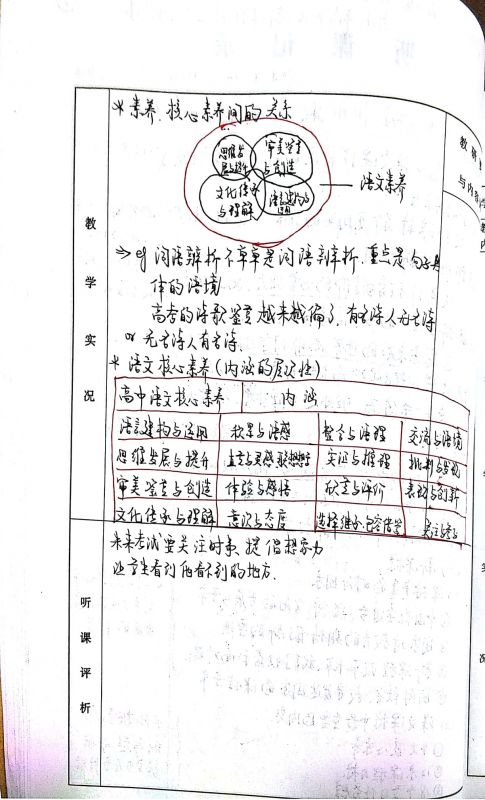 听课记录
教学实况
* 素养、核心素养间的关系
思维发展与提升
审美鉴赏与创造
文化传承与理解
语言建构与运用
语文素养
=> eg 词语辨析不单单是词语辨析、重点是句子具
体的语境
高考的诗歌鉴赏越来越偏了、有名诗人无名诗
or 无名诗人有名诗.
* 语文核心素养(内涵的层次性)
高中语文核心素养 内涵
语言建构与运用 积累与语感 整合与语理 交流与语境
思维发展与提升 直觉与灵感 联想想象 实证与推理 批判与发现
审美鉴赏与创造 体验与感悟 欣赏与评价 表现与创新
文化传承与理解 意识与态度 选择继承 包容借鉴 关注与参与
听课评析
未来考试要关注时事、提倡想象力
让学生看到他看不到的地方.